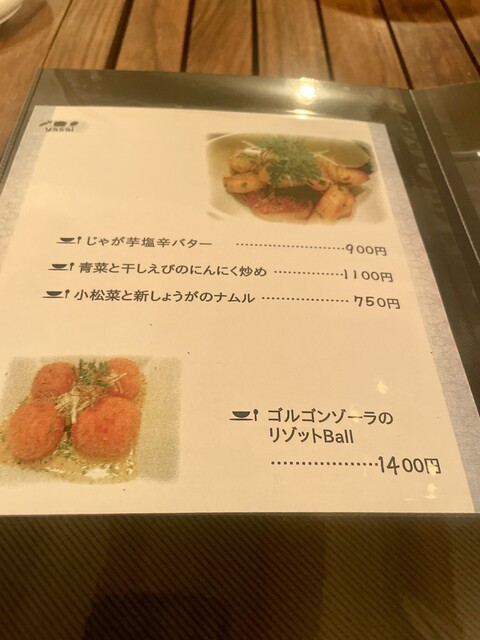 yasai
じゃが芋塩辛バター ……………………900円
青菜と干しえびのにんにく炒め ……………1100円
小松菜と新しょうがのナムル ………………750円
ゴルゴンゾーラの
リゾットBall
…………………1400円